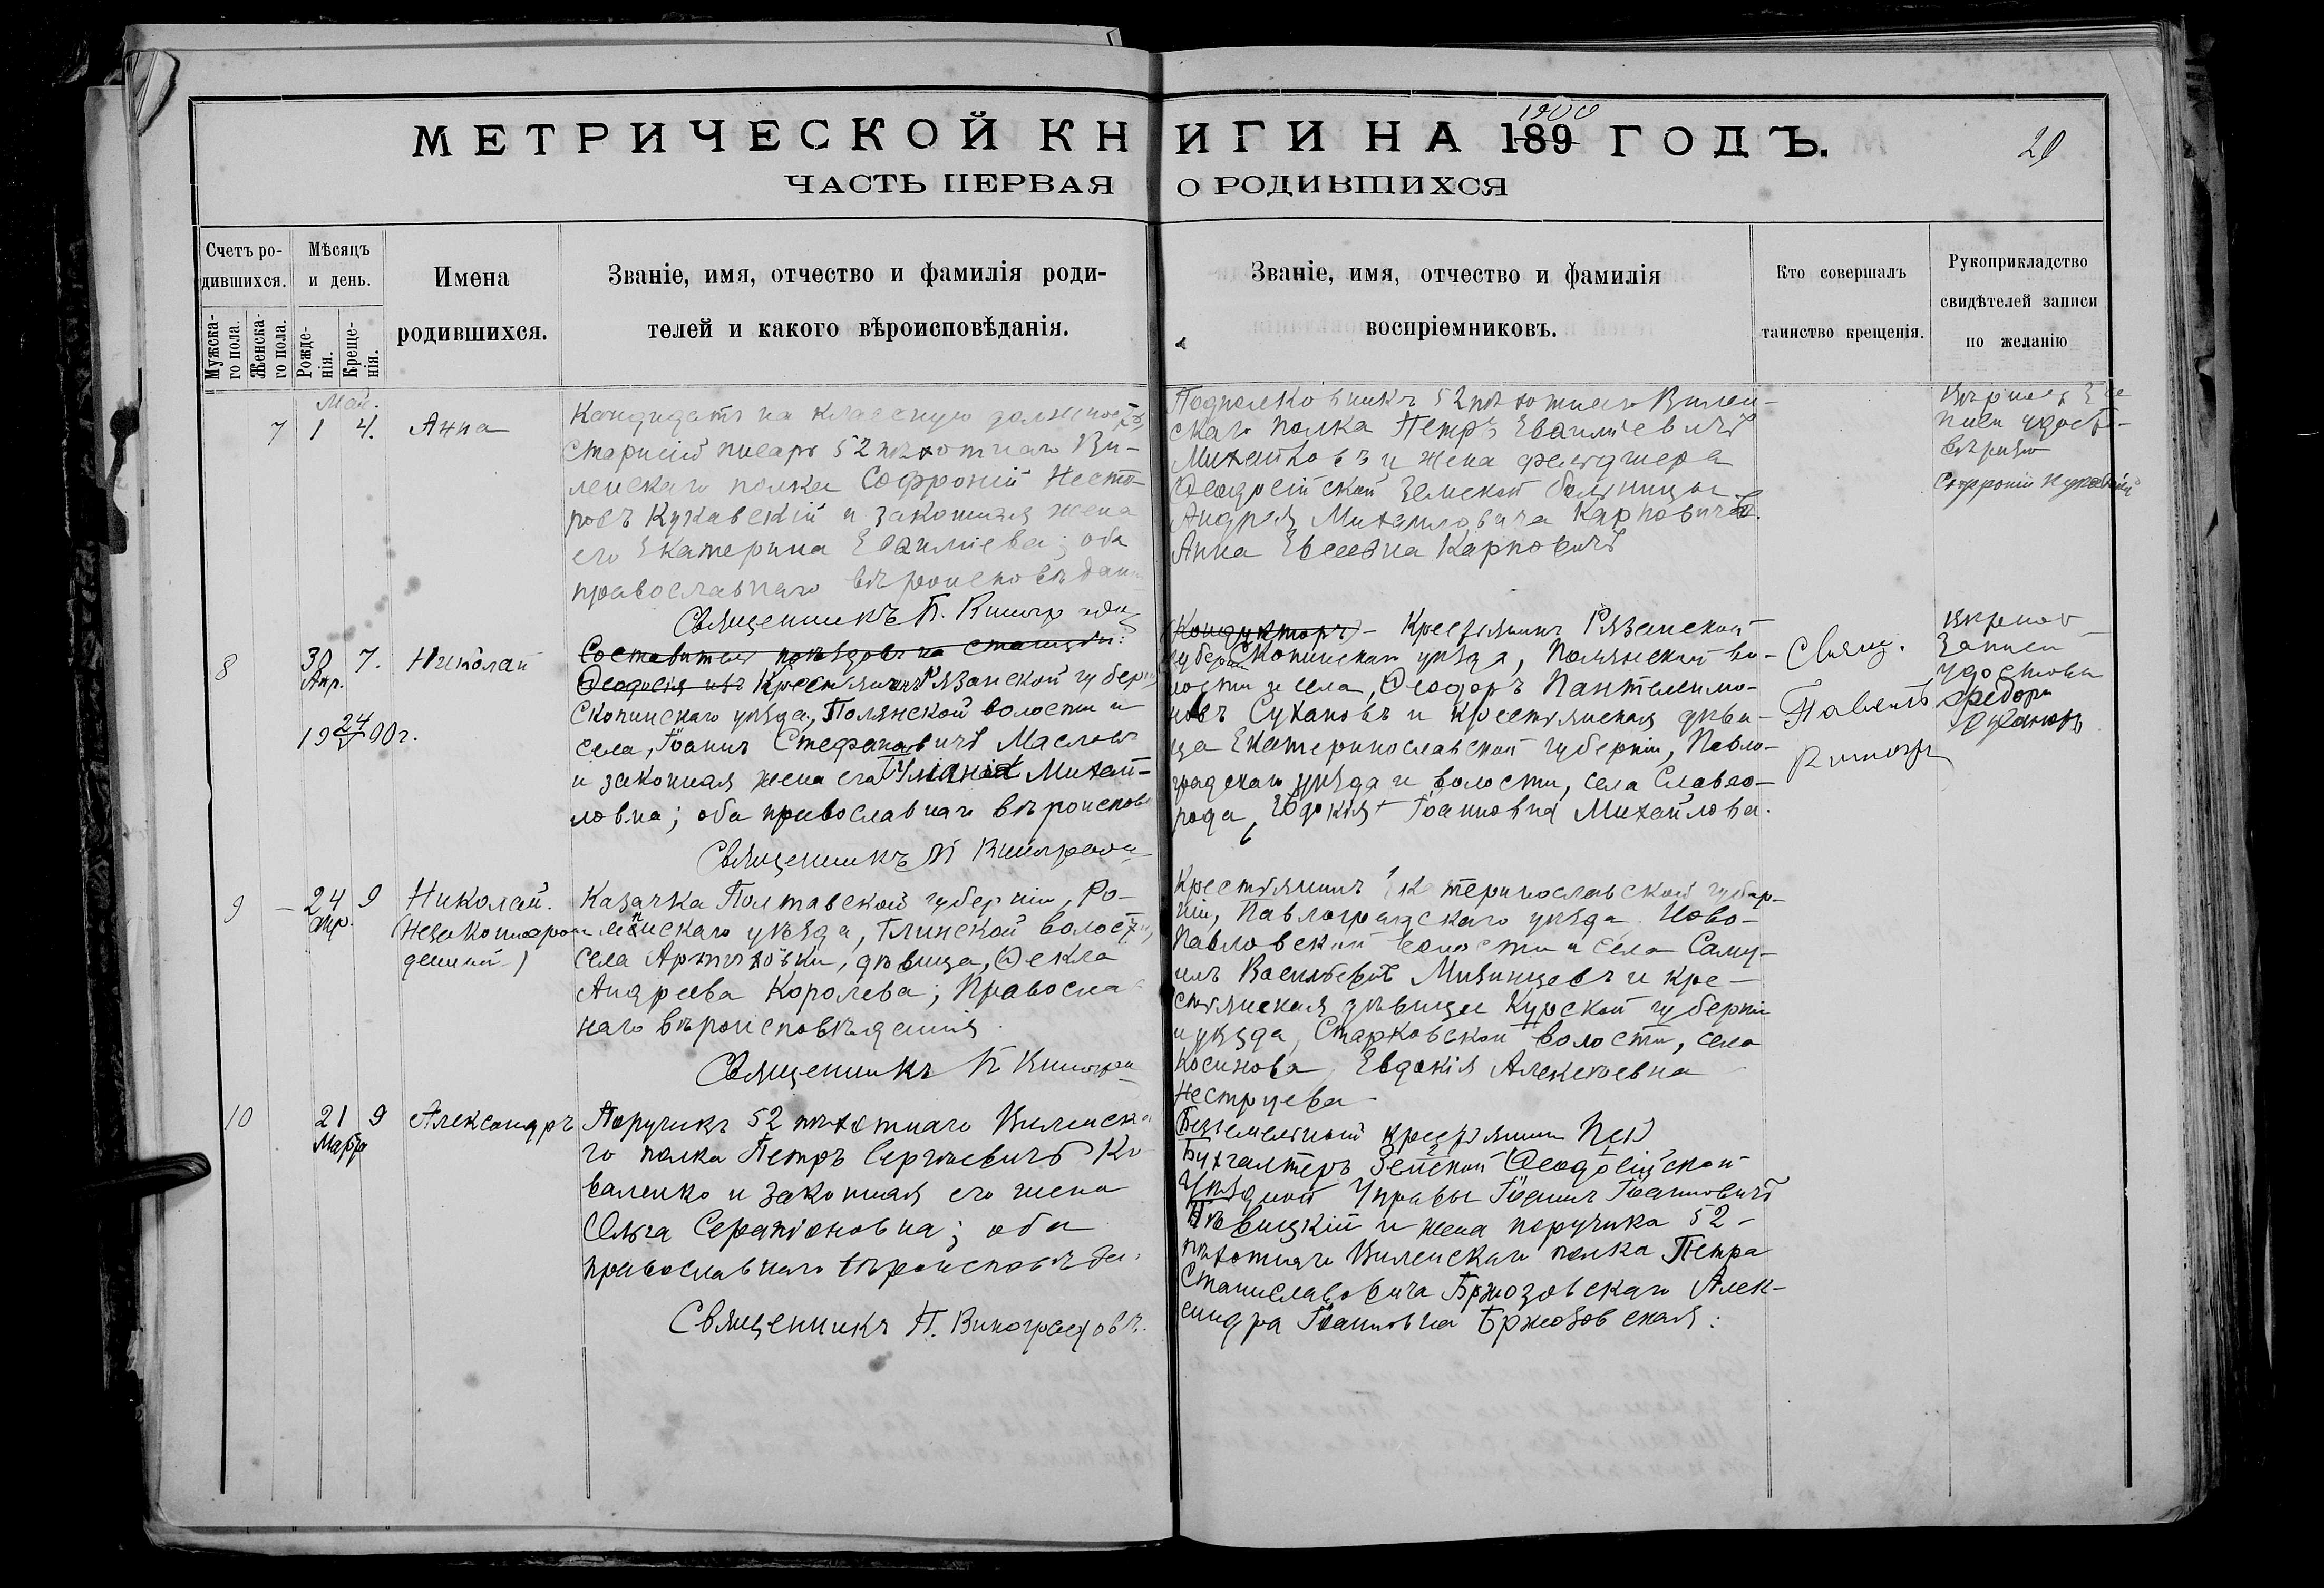 МЕТРИЧЕСКОЙ КНИГИ НА 189 ГОДЪ.
1900
20
ЧАСТЬ ПЕРВАЯ О РОДИВШИХСЯ
Счетъ ро-
дившихся.
Мужска-
го пола.
Женска-
го пола.
Мѣсяцъ
и день.
Рожде-
нія.
Креще-
нія.
Имена
родившихся.
Званіе, имя, отчество и фамилія роди-
телей и какого вѣроисповѣданія.
Званіе, имя, отчество и фамилія
воспріемниковъ.
Кто совершалъ
таинство крещенія.
Рукоприкладство
свидѣтелей записи
по желанію
Май.
7 1 4. Анна
Кандидатъ на классную должность,
старшій писарь 52 пѣхотнаго Ви-
ленскаго полка Софроній Несто-
ровъ Кукавскій и законная жена
его Екатерина Евгиміева; оба
православнаго вѣроисповѣдан
Священникъ П. Виноградо
Подполковникъ 52 пѣхотнаго Вилен-
скаго полка Петръ
Михайловъ и жена фельдшера
Ѳеодосійской Земской больницы
Андрея Михаиловича Карповича
Анна Евсеевна Карповичъ
Софроній Кукавскій
8 30 7. Николай
Апр.
24
1900 г.
V
Составитель поѣздовъ на станціи:
Ѳеодосія изъ Крестьянинъ Рязанской губерн
Скопинскаго уѣзда, Полянской волости и
села, Іоаннъ Стефановичъ Масловъ
и законная жена его Иуліанія Михай-
ловна; оба православнаго вѣроисповѣ
Священникъ П Виноградо
Кондукторъ - Крестьянинъ Рязанской
губерн Скопинскаго уѣзда, Полянской во-
лости и села, Ѳеодоръ Пантелеимо-
новъ Сухановъ и крестьянская дѣви-
ца Екатеринославской губерніи, Павло-
градскаго уѣзда и волости, села Славго-
рода, Евдокія Іоанновна Михайлова.
Свящ.
Павелъ
Виногр
Записи
удостовѣ
Федоръ
Сухановъ
9 - 24 9 Николай.
апр.
(незаконнорож
денный)
Казачка Полтавской губерніи, Ро-
менскаго уѣзда, Глинской волости,
села Артюховки, дѣвица, Ѳекла
Андреева Королева; Правосла
наго вѣроисповѣданія
Священникъ П Виногра
Крестьянинъ Екатеринославской губер-
ніи, Павлоградскаго уѣзда Ново-
Павловской волости и села Саму-
илъ Васильевичъ Мизинцевъ и кре-
стьянская дѣвица Курской губерніи
и уѣзда, Старковской волости, села
Косинова, Евдокія Алексѣевна
Неструева
10 21 9 Александръ
Марта
Поручикъ 52 пѣхотнаго Виленска
го полка Петръ Сергѣевичъ Ко
валенко и законная его жена
Ольга Серапіоновна; оба
православнаго вѣроисповѣда.
Священникъ П. Виноградовъ.
Безземельный крестьянинъ
Бухгалтеръ Земской Ѳеодосійской
Уѣздной Управы Іоаннъ Іоанновичъ
Пѣвицкій и жена поручика 52-
пѣхотнаго Виленскаго полка Петра
Станиславовича Бржозовскаго Алек-
сандра Іоанновна Бржозовская: